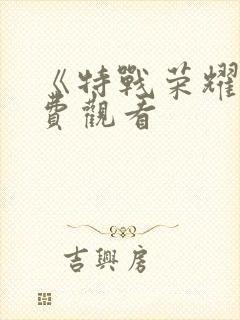 《特戰荣耀
費觀看
吉興房